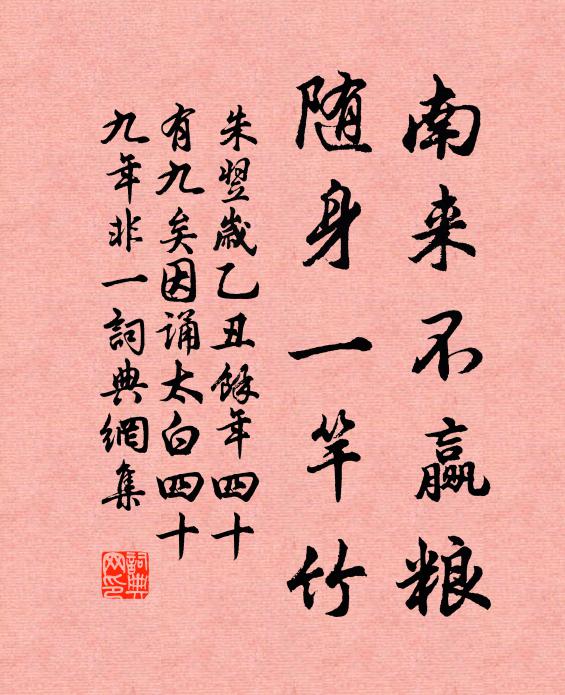 南来不赢粮
随身一竿竹
朱翌歳乙丑餘年四十
有九矣因诵太白四十
九年非一詞典網集
詞典网印